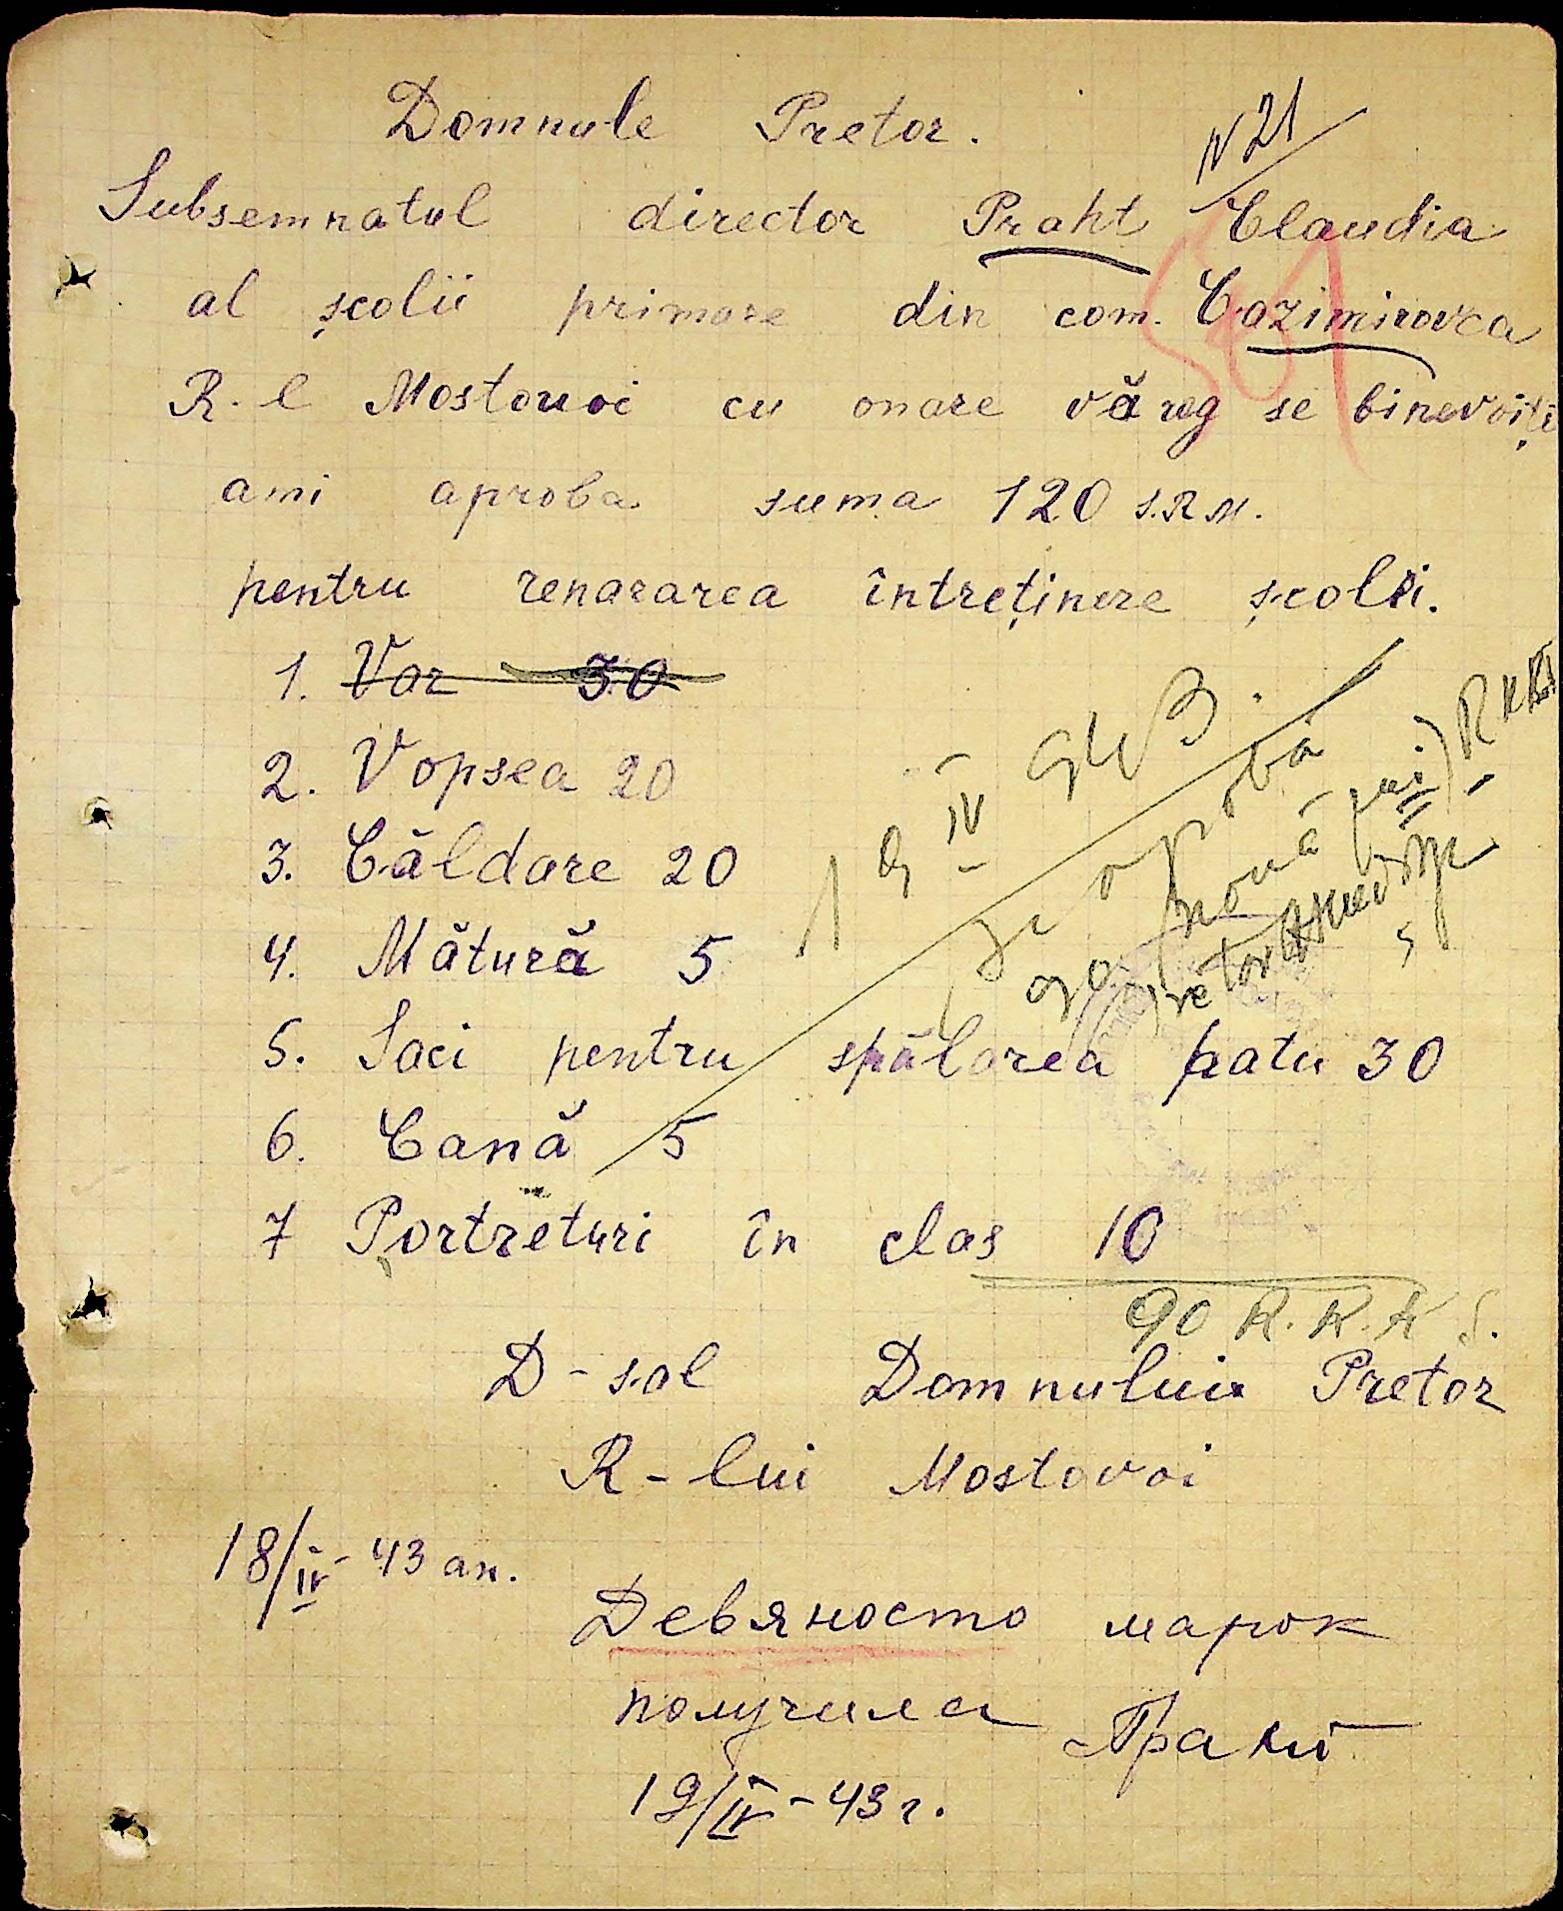 Domnule Pretor.
N 21
Subsemnatul director Praht Claudia
al școlii primare din com. Cazimirovca
R-l Mostovoi cu onare vă rog se binevoiți
ami aproba suma 120 s.R.M.
pentru renararea întreținere școlii.
1. Var 30
2. Vopsea 20
3. Căldare 20
4. Mătură 5
5. Saci pentru spălarea patu 30
6. Cană 5
7 Portreturi în clas 10
19 IV 943.
se aprobă
90 R.K.K S.
D-sal Domnului Pretor
R-lui Mostovoi
18/IV - 43 an.
Девяносто марок
получила Прахт
19/IV - 43 г.